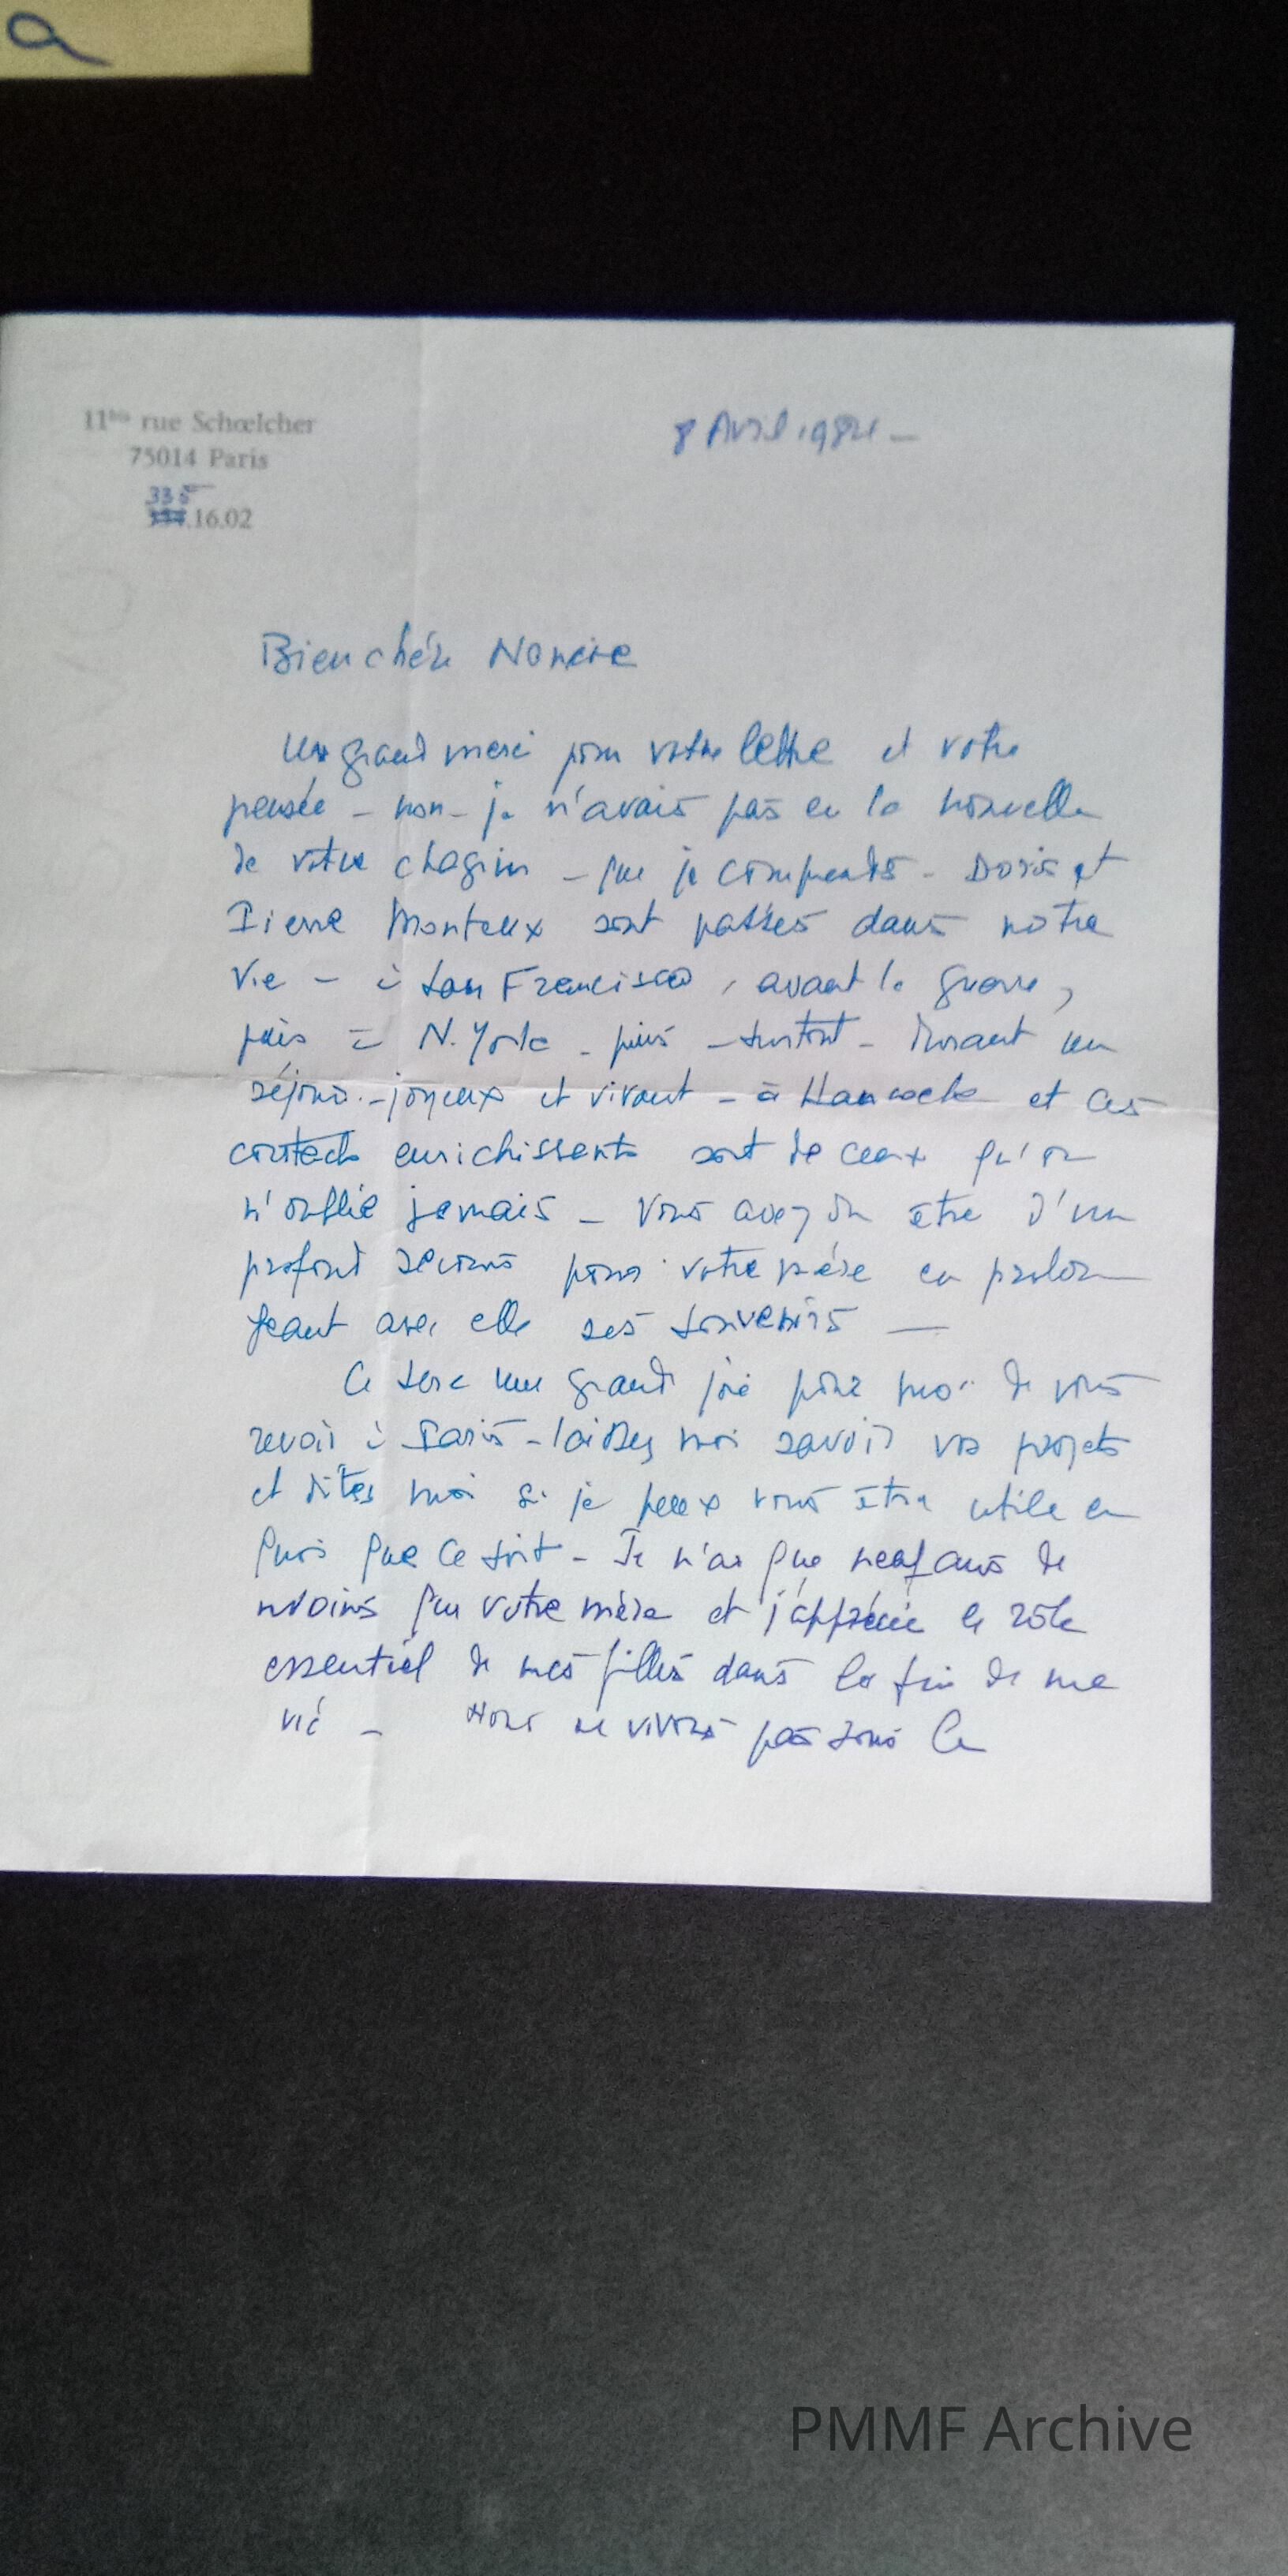 a
11bis rue Schœlcher
75014 Paris
335
.16.02
8 Avril 1984 —
Bien chère Nancie
Un grand merci pour votre lettre et votre
pensée – non – je n'avais pas eu la nouvelle
de votre chagrin – que je comprends – Doris et
Pierre Monteux sont passés dans notre
vie – à San Francisco, avant la guerre,
puis à N. York – puis – surtout – durant un
séjour – joyeux et vivant – à Hancock et ces
contacts enrichissants sont de ceux qu'on
n'oublie jamais – Vous avez dû être d'un
profond secours pour votre mère en prolon
geant avec elle ses souvenirs —
Ce sera une grande joie pour moi de vous
revoir à Paris – laissez moi savoir vos projets
et dites moi si je peux vous être utile en
quoi que ce soit – Je n'ai que neuf ans de
moins que votre mère et j'apprécie le rôle
essentiel de mes filles dans la fin de ma
vie – Nous ne vivons pas sous le
PMMF Archive